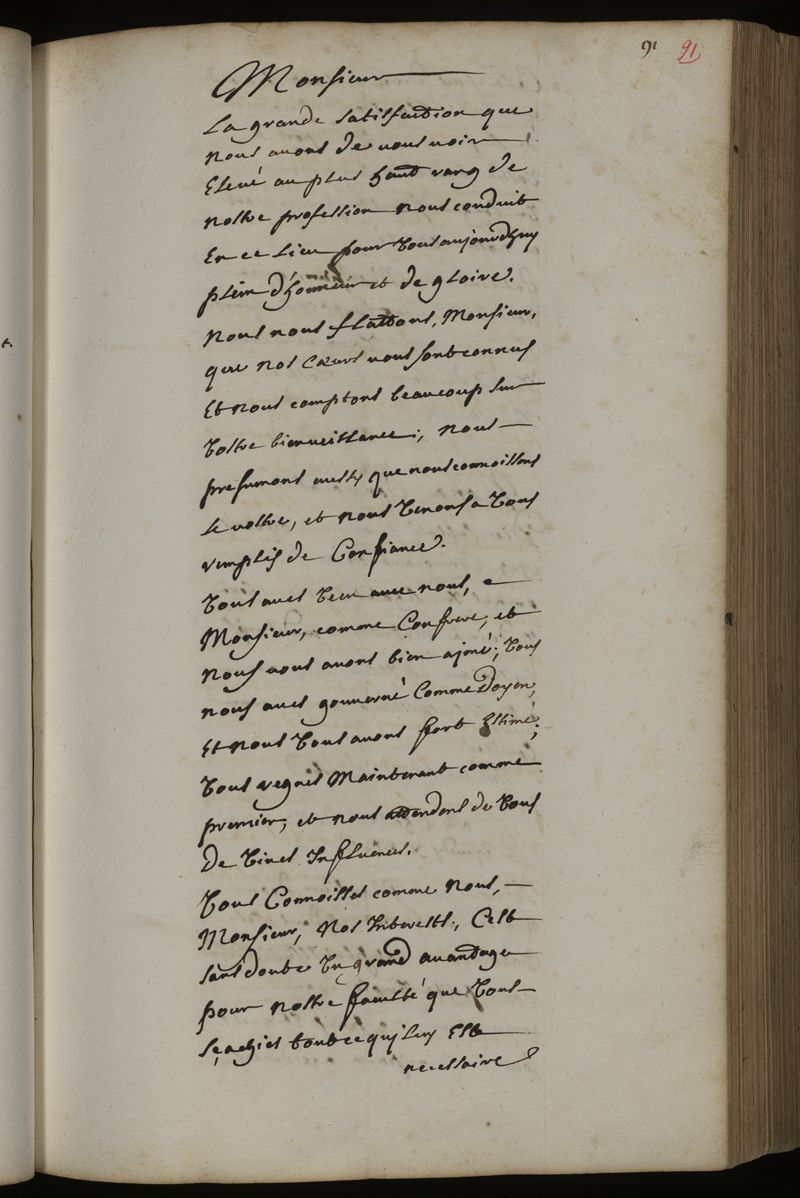 91 91
Monsieur
La grande satisfaction que
nous avons de vous voir
Elevé au plus haut rang de
nostre profession nous conduit
En ce Lieu pour Vous aujourdhuy
plein d'honneur et de gloire.
Nous nous flattons, Monsieur,
que nos Cœurs vous sont connus
Et nous comptons beaucoup sur
Vostre bienveillance; nous
presumons aussy que nous connoissons
Le vostre, et nous Venons a Vous
remplis de Confiance.
Vous aves Vecu avec nous,
Monsieur, comme Confrere, et
Nous vous avons bien ajmé; Vous
nous aves gouverné Comme Doyen,
Et nous Vous avons fort Estimé;
Vous regnes Maintenant comme
premier, et nous attendons de Vous
de Vives Influences.
Vous Connoisses comme Nous,
Monsieur, Nos Interests; C'est
sans doubte Un grand avantage
pour nostre faculté que Vous
sçachies tout ce quj Luy Est
necessaire